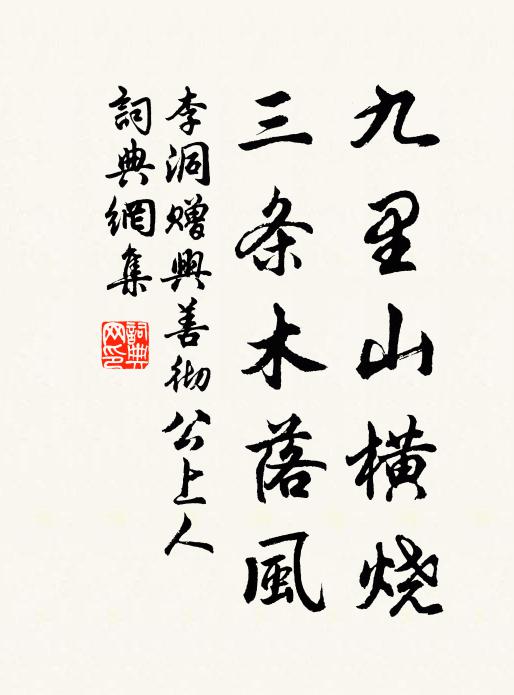 九里山橫烧
三条木落風
李洞赠興善彻公上人
詞典網集
詞典网印